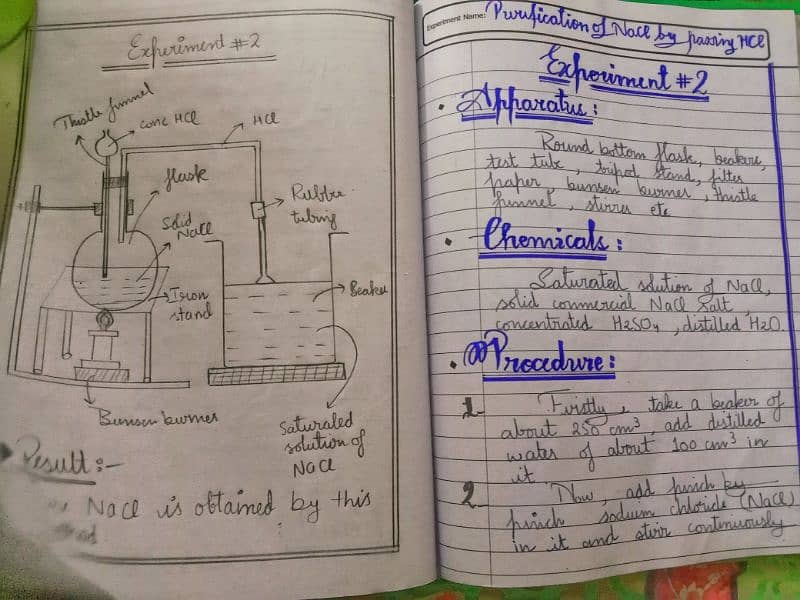 Experiment #2
Thistle funnel
conc HCl
HCl
flask
Rubber
tubing
Solid
NaCl
Iron
stand
Beaker
Bunsen burner
Saturated
solution of
NaCl
Result :-
NaCl is obtained by this
Experiment Name: Purification of NaCl by passing HCl
Experiment #2
• Apparatus :
Round bottom flask, beakers,
test tube, tripod stand, filter
paper, bunsen burner, thistle
funnel, stirrer etc
• Chemicals :
Saturated solution of NaCl,
solid commercial NaCl salt,
concentrated H2SO4, distilled H2O.
• Procedure :
1. Firstly, take a beaker of
about 250 cm³, add distilled
water of about 100 cm³ in
it.
2. Now, add pinch by
pinch sodium chloride (NaCl)
in it and stir continuously